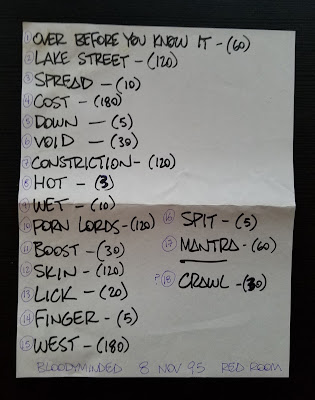 1 OVER BEFORE YOU KNOW IT - (60)
2 LAKE STREET - (120)
3 SPREAD - (10)
4 COST - (180)
5 DOWN - (5)
6 VOID - (30)
7 CONSTRICTION - (120)
8 HOT - (3)
9 WET - (10)
10 PORN LORDS - (120)
11 BOOST - (30)
12 SKIN - (120)
13 LICK - (20)
14 FINGER - (5)
15 WEST - (180)
16 SPIT - (5)
17 MANTRA - (60)
?18 CRAWL - (30)
BLOODYMINDED 8 NOV 95 RED ROOM